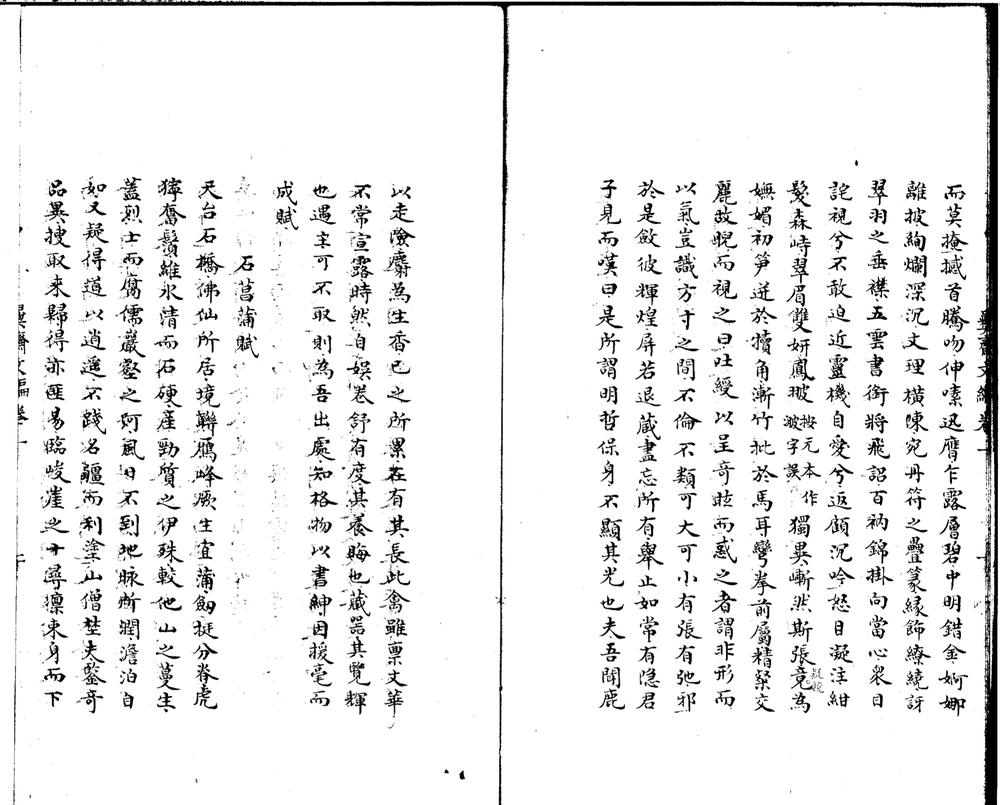 而莫掩撼首騰吻伸嗉迅膺乍露層碧中明錯金婀娜
離披絢爛深沉文理橫陳宛丹符之疊篆緣飾繚繞訝
翠羽之垂襟五雲書銜將飛詔百衲錦掛向當心衆目
詫視兮不敢迫近靈機自愛兮返顧沉吟怒目凝注紺
髮森峙翠眉雙妍鳳玻按元本作玻字誤獨異嶄然斯張竟為
嫵媚初笋迸於犢角漸竹批於馬耳彎拳前屬精粲交
麗故睨而視之曰吐綬以呈奇眩而惑之者謂非形而
以氣豈識方寸之間不倫不類可大可小有張有弛邪
於是斂彼輝煌屏若退藏盡忘所有舉止如常有隱君
子見而嘆曰是所謂明哲保身不顯其光也夫吾聞鹿
以走險麝為生香已之所累在有其長此禽雖禀文華
不常宣露時然自娱卷舒有度其養晦也藏器其覽輝
也遇主可不取則為吾出處知格物以書紳因援毫而
成賦
石菖蒲賦
天台石橋佛仙所居境聯鴈峰厥生宜蒲劒挺分脊虎
獰奮鬚維水清而石硬產勁質之伊殊較他山之蔓生
蓋烈士而腐儒巖壑之阿風日不到地脉斯潤澹泊自
如又疑得道以逍遥不踐名疆而利塗山僧埜夫鑒奇
品異搜取來歸得亦匪易臨峻崖之十尋凛束身而下